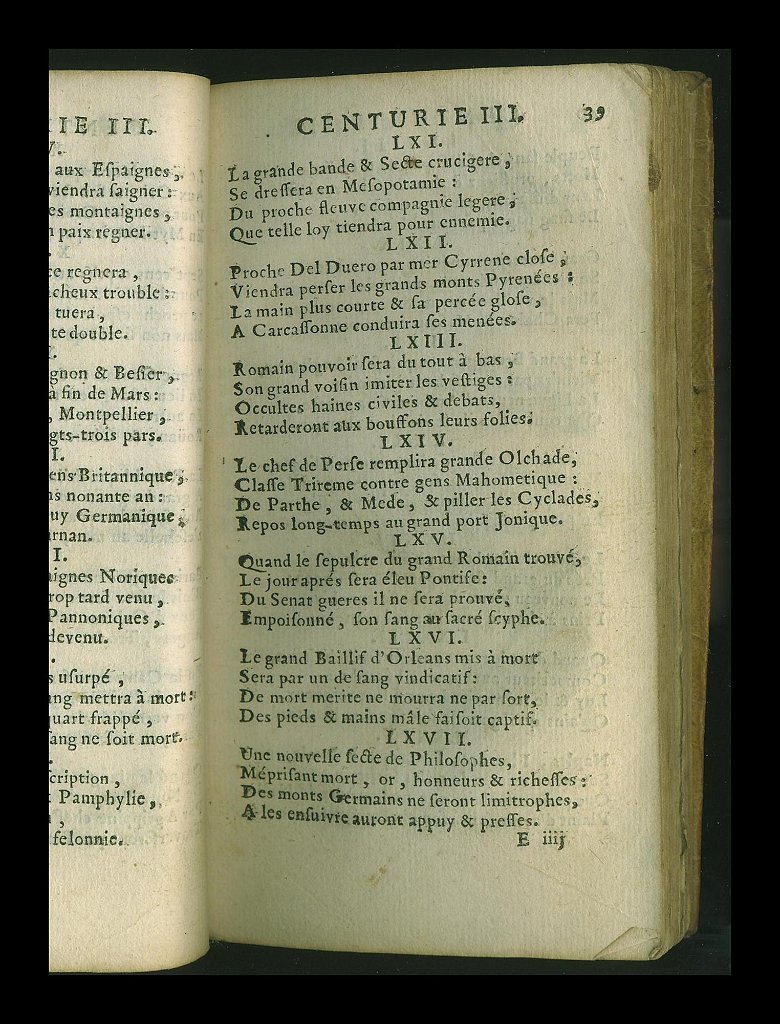 IE III.
V.
aux Eſpaignes,
viendra ſaigner:
es montaignes,
n paix regner.
ce regnera,
cheux trouble:
tuera,
te double.
gnon & Beſier,
à fin de Mars:
, Montpellier,
gts-trois pars.
I.
ens Britannique;
ns nonante an:
uy Germanique;
rnan.
I.
aignes Noriques
rop tard venu,
Pannoniques,
devenu.
s uſurpé,
ang mettra à mort:
uart frappé,
ſang ne ſoit mort.
cription,
Pamphylie,
,
felonnie.
CENTURIE III. 39
LXI.
La grande bande & Secte crucigere;
Se dreſſera en Meſopotamie:
Du proche fleuve compagnie legere;
Que telle loy tiendra pour ennemie.
LXII.
Proche Del Duero par mer Cyrrene cloſe;
Viendra perſer les grands monts Pyrenées:
La main plus courte & ſa percée gloſe,
A Carcaſſonne conduira ſes menées.
LXIII.
Romain pouvoir ſera du tout à bas,
Son grand voiſin imiter les veſtiges:
Occultes haines civiles & debats,
Retarderont aux bouffons leurs folies.
LXIV.
Le chef de Perſe remplira grande Olchade,
Claſſe Trireme contre gens Mahometique:
De Parthe, & Mede, & piller les Cyclades,
Repos long-temps au grand port Jonique.
LXV.
Quand le ſepulcre du grand Romain trouvé,
Le jour aprés ſera éleu Pontife:
Du Senat gueres il ne ſera prouvé,
Empoiſonné, ſon ſang au ſacré ſcyphe.
LXVI.
Le grand Baillif d'Orleans mis à mort
Sera par un de ſang vindicatif:
De mort merite ne mourra ne par ſort,
Des pieds & mains mâle faiſoit captif.
LXVII.
Une nouvelle ſecte de Philoſophes,
Mépriſant mort, or, honneurs & richeſſes:
Des monts Germains ne ſeront limitrophes,
A les enſuivre auront appuy & preſſes.
E iiij